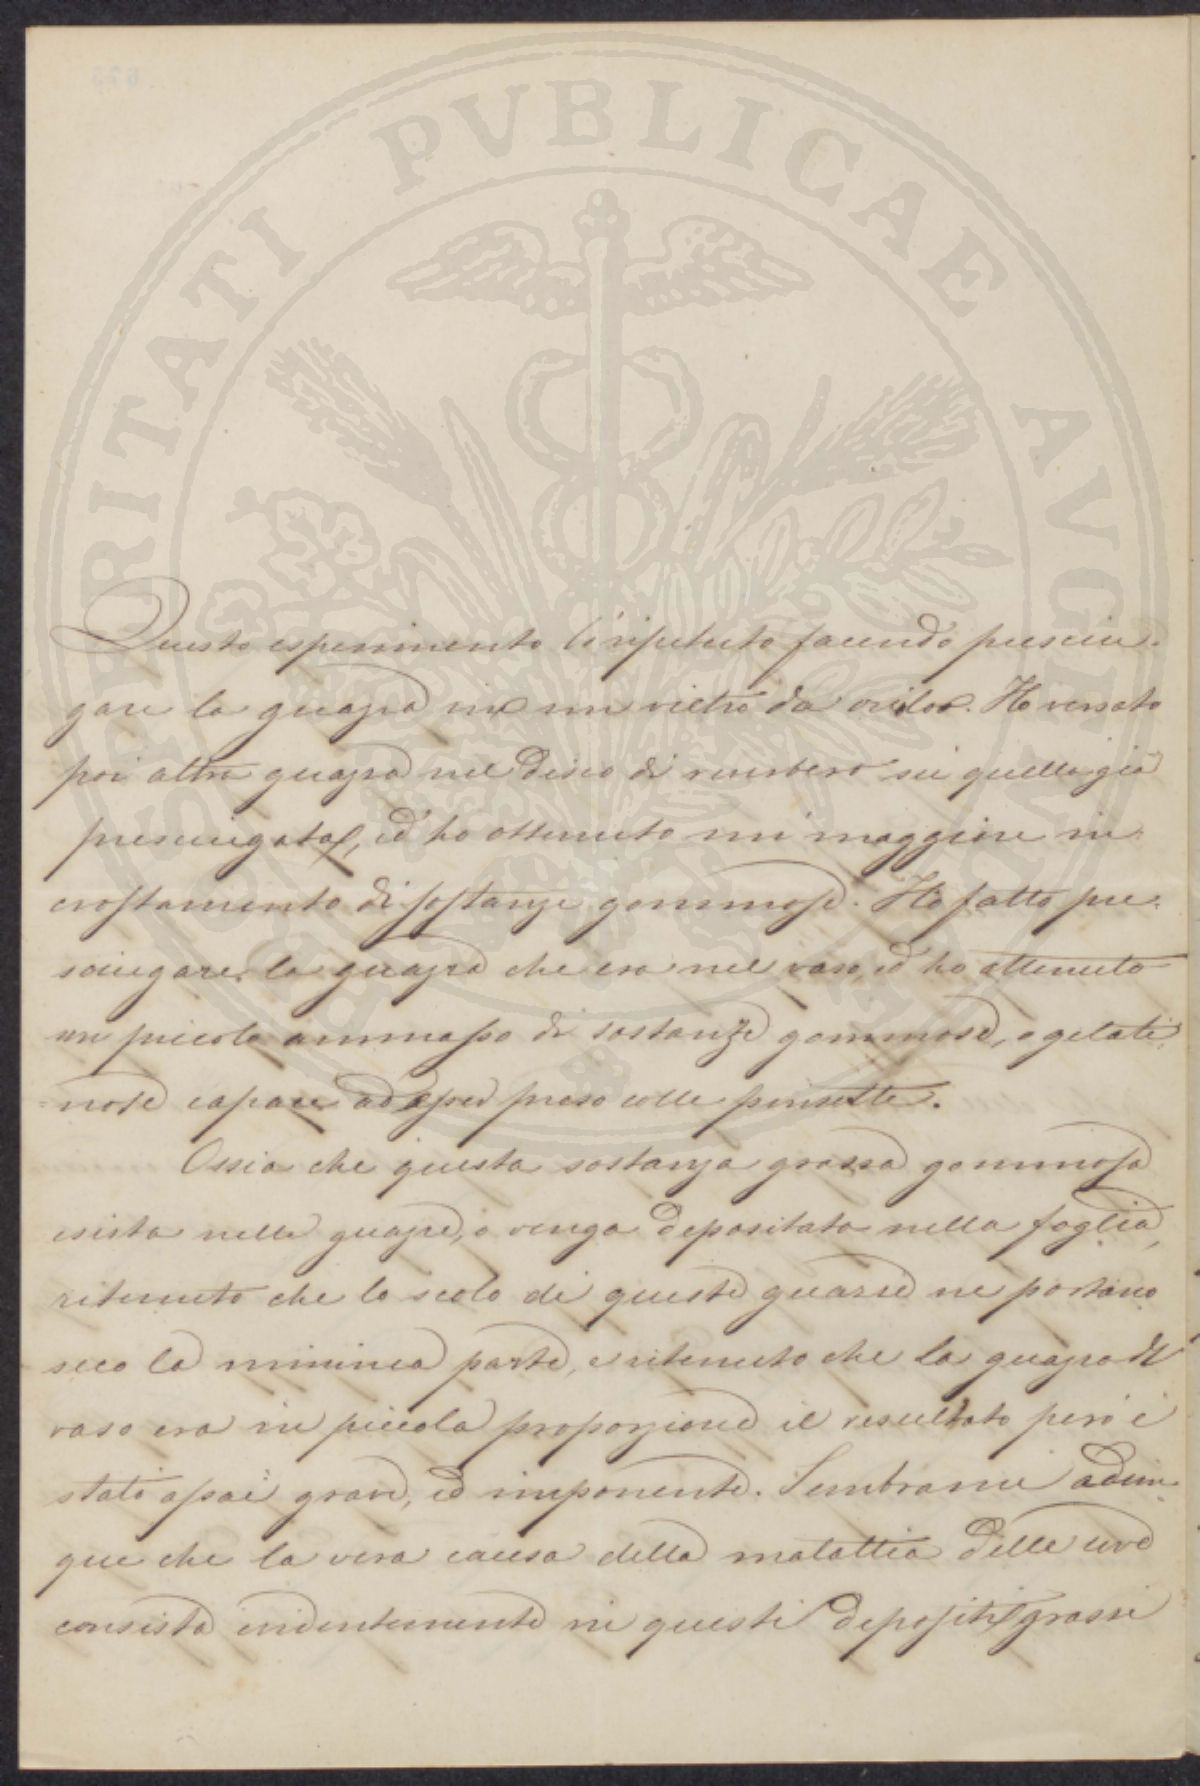 PROSPERITATI PVBLICAE AVGENDAE
Questo esperimento l'ò ripetuto facendo prosciu-
gare la guazza in un vietro da orilor. Ho versato
poi altra guazza nel disco di riverbero su quella già
prosciugata, ed ho ottenuto un maggiore in-
crostamento di sostanze gommose. Ho fatto pro-
sciugare la guazza che era nel vaso, ed ho ottenuto
un piccolo ammasso di sostanze gommose, o gelati-
nose capace ad esser preso colle pinsette.
Ossia che questa sostanza grassa gommosa
esista nelle guazze, o venga depositata nella foglia,
ritenuto che lo scolo di queste guazze ne portano
seco la minima parte, e ritenuto che la guazza del
vaso era in piccola proporzione il resultato però è
stato assai grave, ed imponente. Sembrami adun-
que che la vera causa della malattia delle uve
consista evidentemente in questi depositi grassi